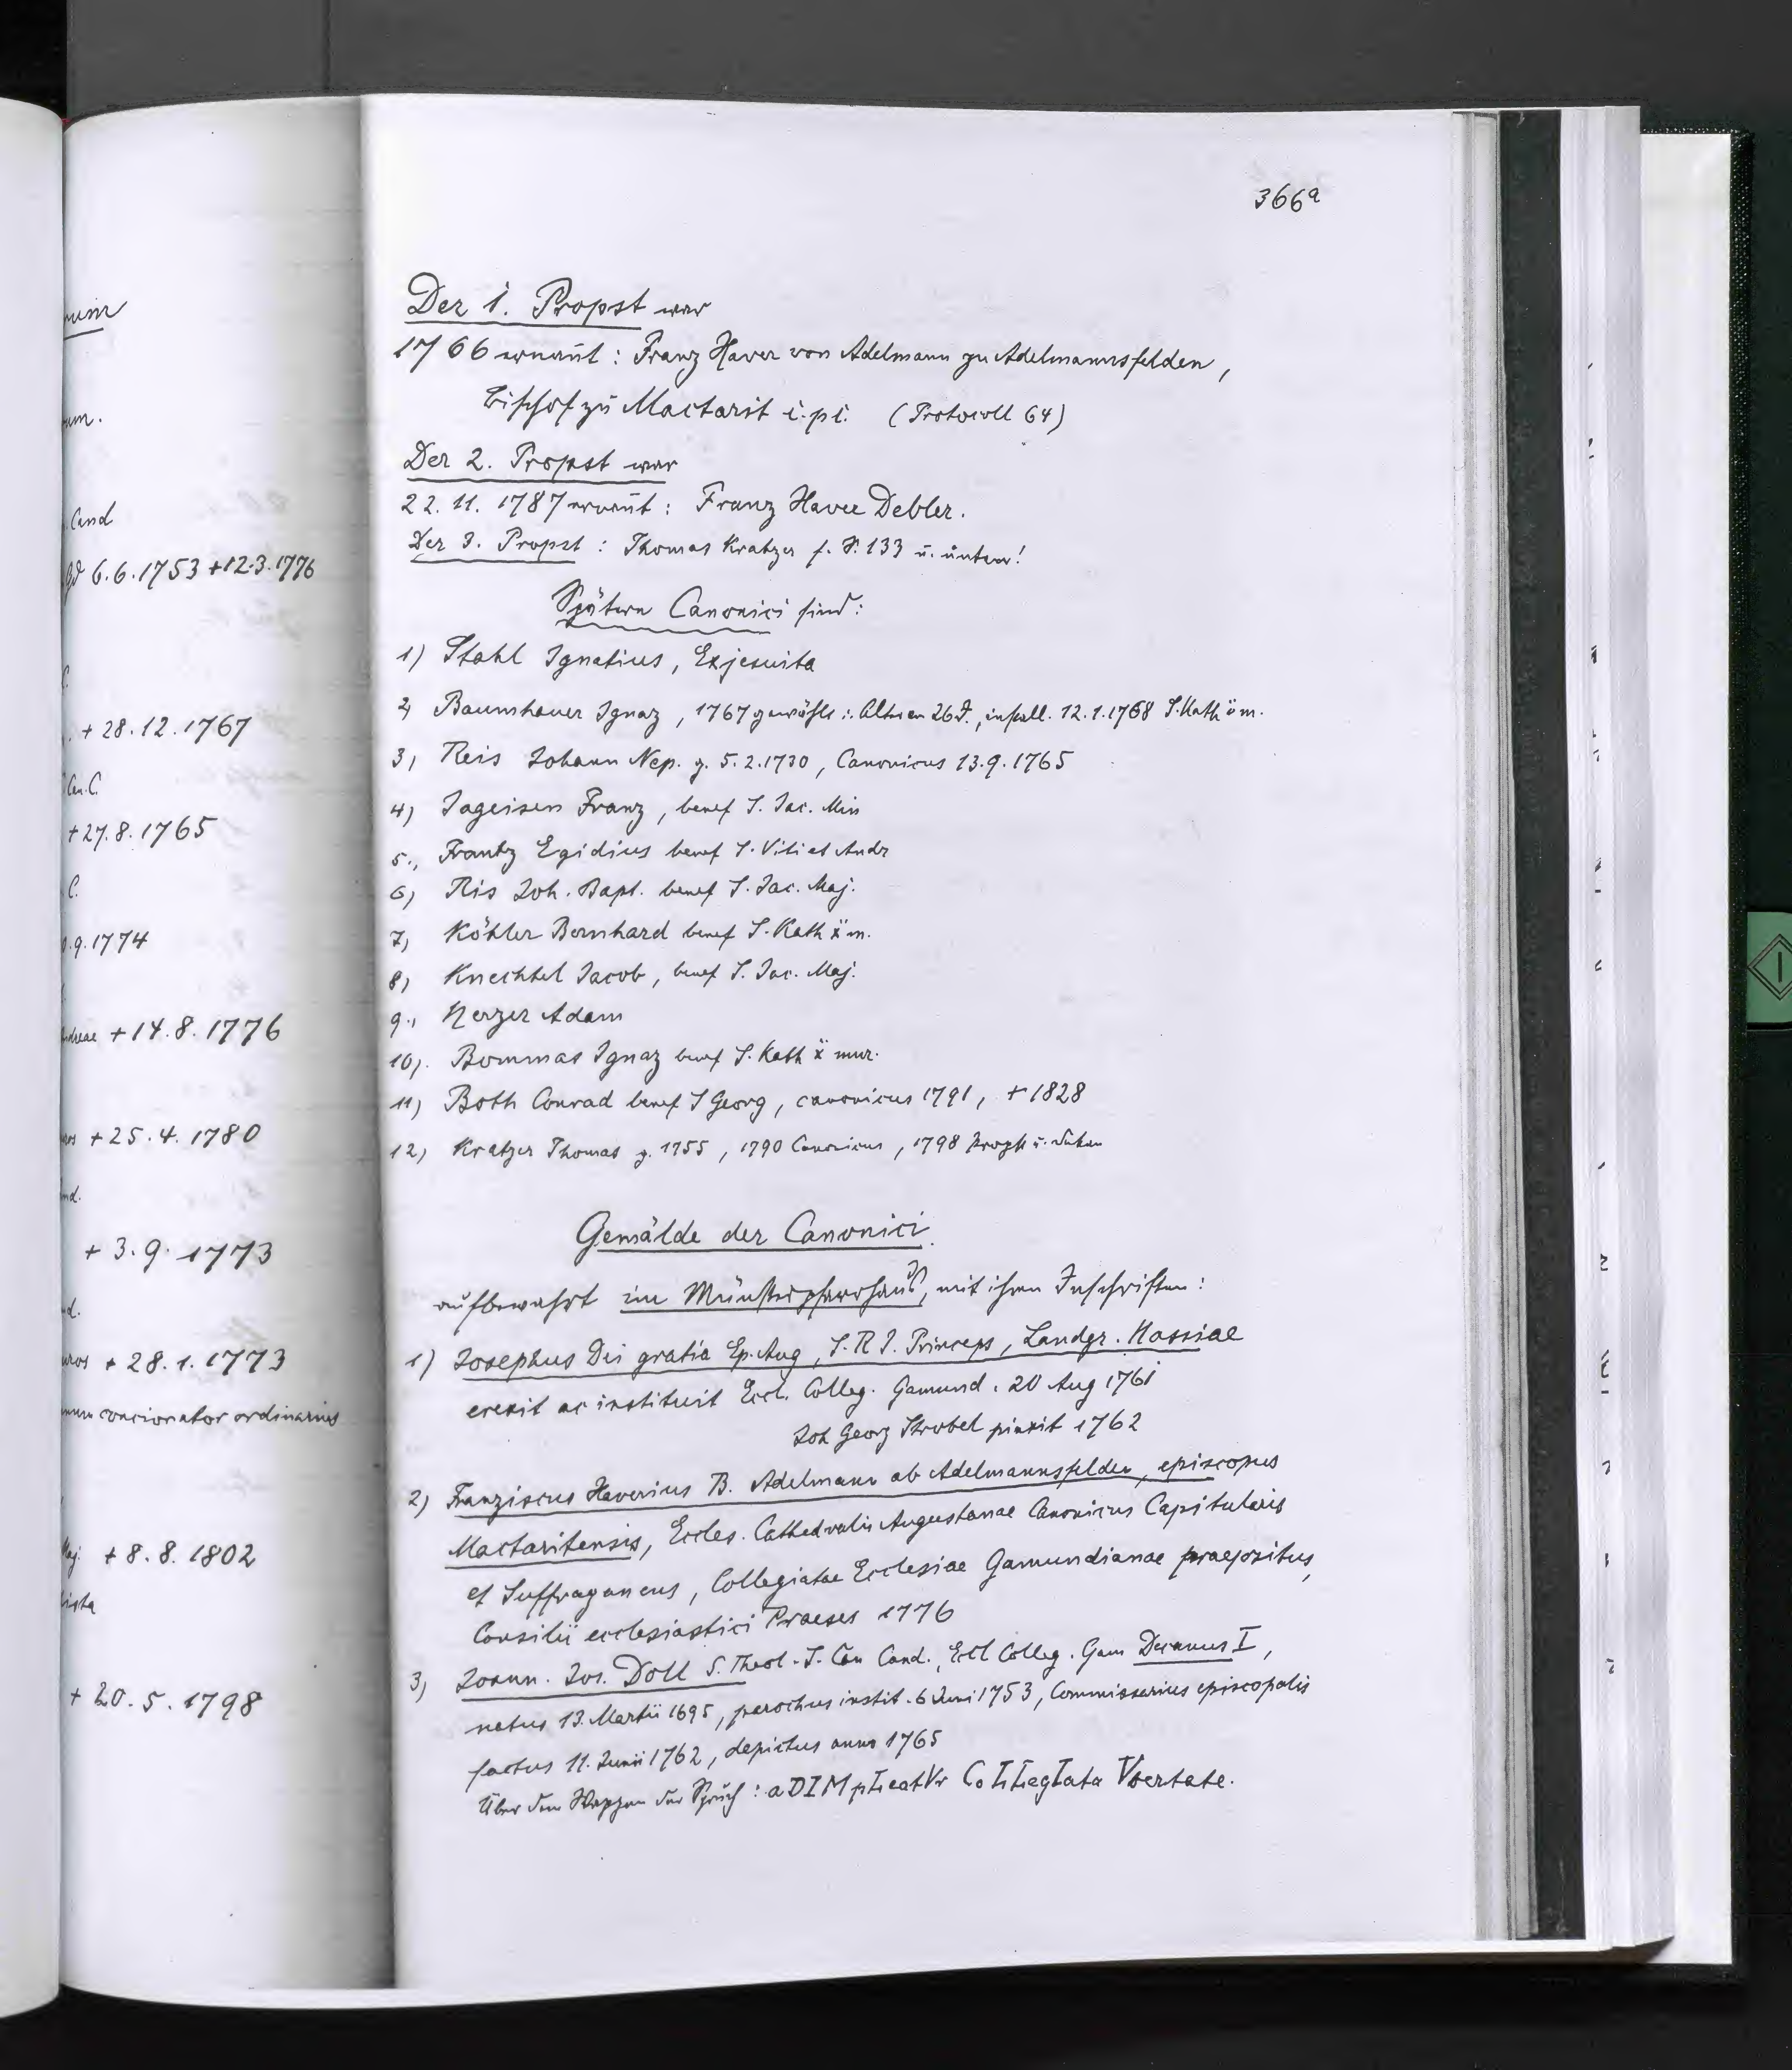 um
um.
Cand
6.6.1753 +12.3.1776
+ 28.12.1767
Can. C.
+27.8.1765
C.
.9.1774
Andreae +14.8.1776
+25.4.1780
nd.
+ 3.9.1773
d.
muros + 28.1.1773
concionator ordinarius
Maj. + 8.8.1802
ista
+ 20.5.1798
366a
Der 1. Propst war
1766 ernannt: Franz Xaver von Adelmann zu Adelmannsfelden,
Bischof zu Mactarit i. pi. (Protocoll 64)
Der 2. Propst war
22.11.1787 ernannt: Franz Xaver Debler.
Der 3. Propst: Thomas Kratzer s. S. 133 u. unten!
Spätern Canonici sind:
1) Stahl Ignatius, Exjesuita
2) Baumhauer Ignaz, 1767 gewählt i. Alter von 26 J., install. 12.1.1768 S. Kath ö m.
3) Reis Johann Nep. g. 5.2.1730, Canonicus 13.9.1765
4) Jageisen Franz, benef S. Jac. Min
5., Frantz Egidius benef S. Viti et Andr
6) Ris Joh. Bapt. benef S. Jac. Maj.
7) Köhler Bernhard benef S. Kath ẍ m.
8) Knechtel Jacob, benef S. Jac. Maj.
9., Herzer Adam
10). Bommas Ignaz benef S. Kath ẍ mur.
11) Both Conrad benef S Georg, canonicus 1791, + 1828
12) Kratzer Thomas g. 1755, 1790 Canonicus, 1798 Propst u. Dekan
Gemälde der Canonici.
aufbewahrt im Münsterpfarrhaus, mit ihren Inschriften:
1) Josephus Dei gratia Ep. Aug, S. R I. Princeps, Landgr. Hassiae
erexit ac instituit Eccl. Colleg. Gamund. 20 Aug 1761
Joh Georg Strobel pinxit 1762
2) Franziscus Xaverius B. Adelmann ab Adelmannsfelden, episcopus
Mactaritensis, Eccles. Cathedralis Augustanae Canonicus Capitularis
et Suffraganeus, Collegiatae Ecclesiae Gamundianae praepositus,
Consilii ecclesiastici Praeses 1776
3) Joann. Jos. Doll S. Theol. J. Can Cand., Eccl Colleg. Gam Decanus I,
natus 13. Martii 1695, parochus instit. 6 Juni 1753, Commissarius episcopalis
factus 11. Junii 1762, depictus anno 1765
Über dem Wappen der Spruch: aDIMpLeatVr CoLLegIata Vbertate.